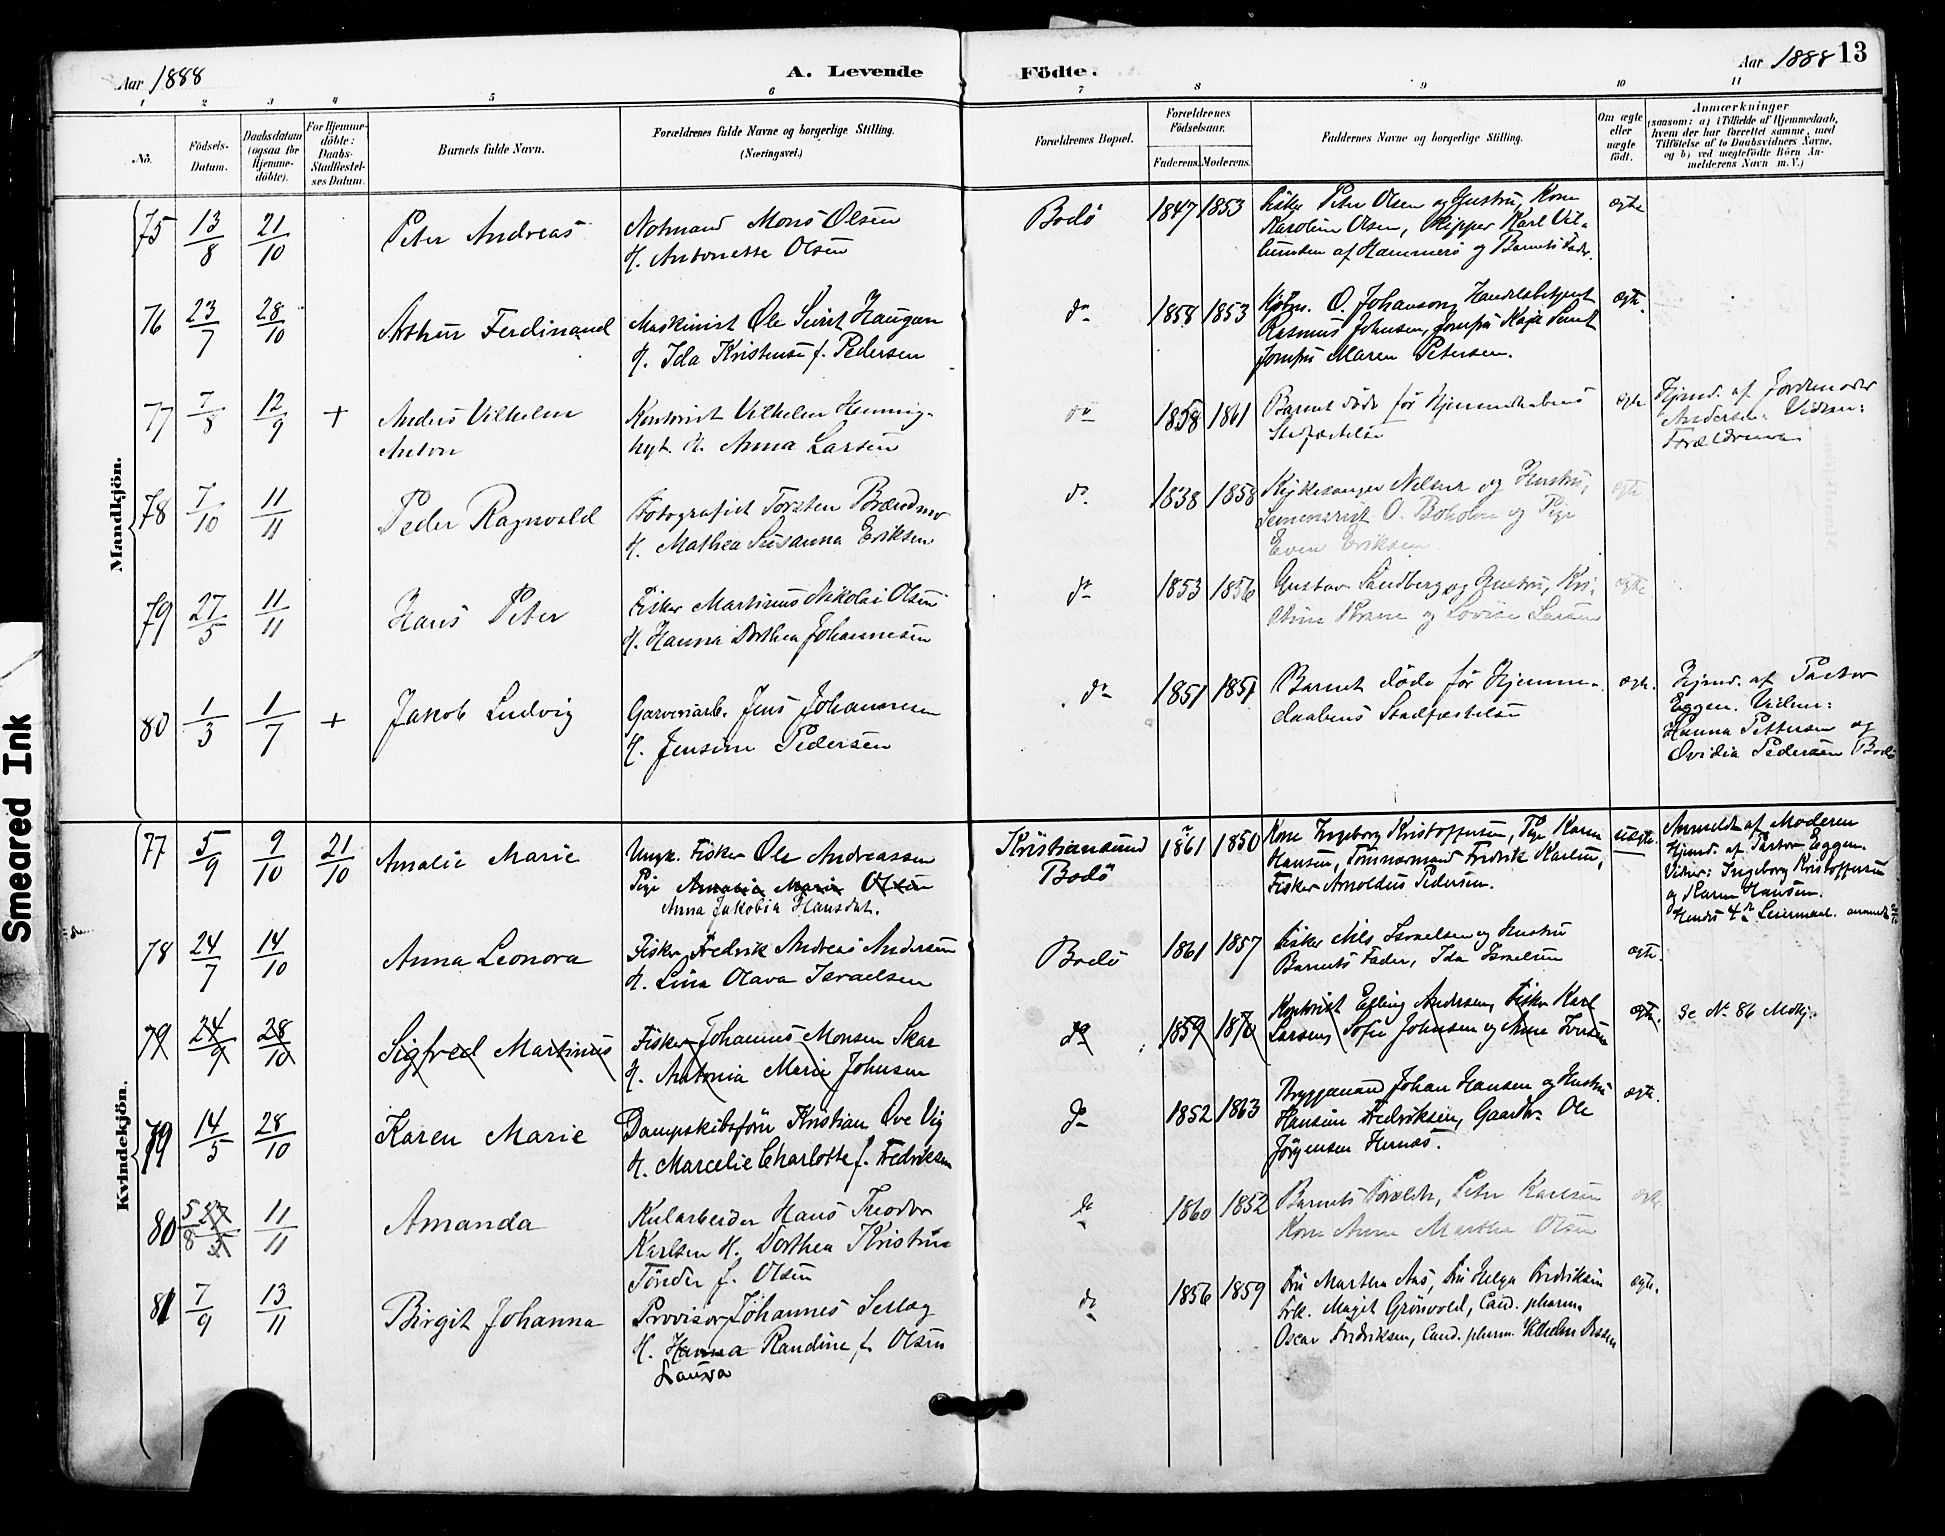 Aar 1888
A. Levende Födte.
Aar 1888 13
1 2 3 4 5 6 7 8 9 10 11
No.
Födsels-Datum.
Daabsdatum (ogsaa for Hjemmedöbte).
For Hjemmedöbte: Daabs-Stadfæstelses Datum.
Barnets fulde Navn.
Forældrenes fulde Navne og borgerlige Stilling.
(Næringsvei.)
Forældrenes Bopæl.
Forældrenes Födselsaar.
Faderens. Moderens.
Faddernes Navne og borgerlige Stilling.
Om ægte eller uægte födt.
Anmærkninger
(saasom: a) i Tilfælde af Hjemmedaab,
hvem der har forrettet samme, med
Tilföielse af to Daabsvidners Navne,
og b) ved uægtefödte Börn Anmelderens Navn m. V.)
Mandkjön.
75 13/8 21/10 Peter Andreas
Notmand Mons Olsen
H. Antonette Olsen
Bodö 1847 1853
Fisker Peter Olsen og Hustru, Kone
Karoline Olsen, Skipper Karl
af Hammerö og Barnets Fader.
ægte
76 23/7 28/10 Arthur Ferdinand
Maskinist Ole Haugan
H. Ida Kristense f. Pedersen
do 1858 1853
Kjöbm. O. Johanson, Handelsbetjent
Rasmus Johnsen, Jomfru Kaja
Jomfru Maren Petersen.
ægte.
77 7/8 12/9 + Anders Vilhelm
Anton
Kontorist Vilhelm Henning-
H. Anna Larsen
do 1858 1861
Barnet döde för Hjemmedaabens
Stadfæstelse
ægte
Hjmd. af Jordemoder
Andersen. Vidner:
Forældrene
78 7/10 11/11 Peder Ragnvald
Fotografist Torsten Brændmo
H. Mathea Susanna Eriksen.
do 1838 1858
Kirkesanger Nilsen og Hustru,
Seminarist O. Boholm og Pige
Even Eriksen
ægte
79 27/5 11/11 Hans Peter
Fisker Martinus Nikolai Olsen
H. Hanna Dorthea Johannesen
do 1853 1856
Gustav Sandberg og Hustru, Kri-
og Lovise Larsen
ægte
80 1/3 1/7 + Jakob Ludvig
Garveriarb. Jens Johannesen
H. Jensine Pedersen
do 1851 1851
Barnet döde för Hjemme-
daabens Stadfæstelse
ægte.
Hjmd. af Pastor
Eggen. Vidner:
Hanna Pettersen og
Ovidia Pedersen Bodö
Kvindekjön.
77 5/9 9/10 21/10 Amalie Marie
Ungk. Fisker Ole Andreassen
Pige Amalia Maria Olsen
Anna Jakobia Hansdat.
Kristiansund
Bodö
1861 1850
Kone Ingeborg Kristoffersen, Pige Karen
Hansen, Tömmermand Fredrik Karlsen,
Fisker Arnoldus Pedersen.
uægte.
Anmeldt af Moderen
Hjmd. af Pastor Eggen.
Vidner: Ingeborg Kristoffersen
og Karen Hansen.
Hendes 4de Leiermaal.
78 24/7 14/10 Anna Leonora
Fisker Fredrik Andreas Andersen
H. Lina Olava Israelsen
Bodö 1861 1857
Fisker Nils Israelsen og Hustru
Barnets Fader, Ida Israelsen
ægte.
79 24/9 28/10 Sigfred Martinus
Fisker Johannes Monsen Skar
H. Antonia Marie Johnsen
do 1859 1870
Kontorist Egling Andersen, Fisker Karl
Larsen, Sofie Johnsen og Anne Iversen
ægte.
Se No 86 Mdkj.
79 14/5 28/10 Karen Marie
Dampskibsförer Kristian Ove Vig
H. Marcelie Charlotte f. Fedriksen
do 1852 1863
Bryggemand Johan Hansen og Hustru
Hansine Fredriksen, Gaardbr. Ole
Jörgensen Hernæs.
ægte.
80 5/8 27/5 11/11 Amanda
Kularbeider Hans Theodor
Karlsen H. Dorthea Kristine
Tönder f. Olsen
do 1860 1852
Barnets Forældre, Peter Karlsen
Kone Anne Martha Olsen
ægte
81 7/9 13/11 Birgit Johanna
Provisor Johannes Sellæg
H. Hanna Randine f. Olsen
Laura
do 1856 1859
Fru Martha Aas, Fru Helga Fredriksen
Frk. Magit Grönvold, Cand. pharm.
Oscar Fredriksen, Cand. pharm. Vilhelm
ægte.
Smeared Ink